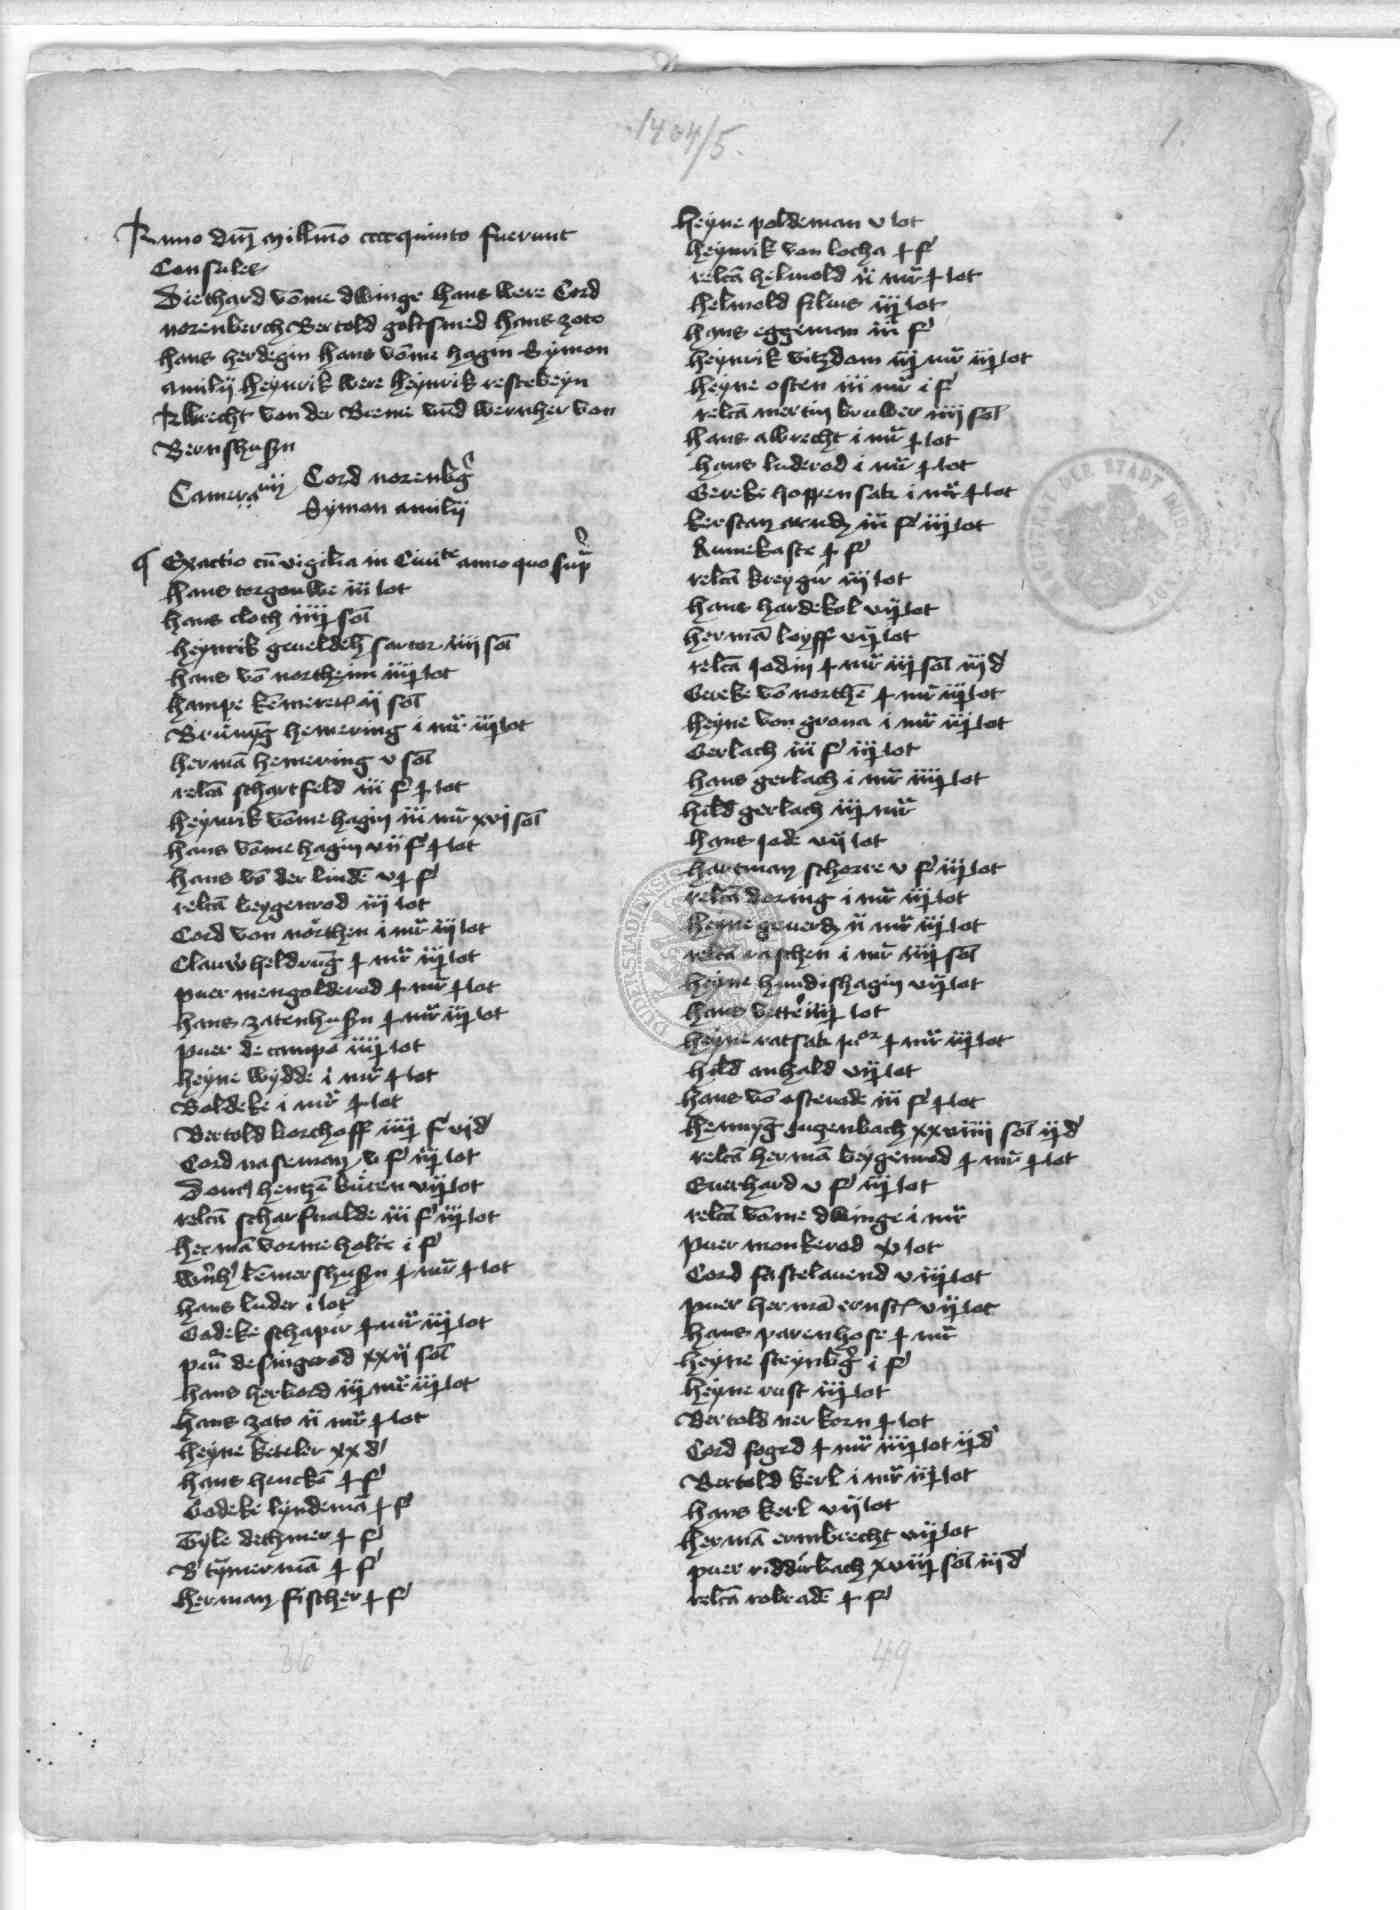 1404/5.
1.
Anno dm̄ millīo ccccquinto fuerunt
Consules
Diethard vōme dwinge hans were Cord
norenberch Bertold goltsmed hans zoto
hans herdegin hans vōme hagin Symon
amilij heynrik were heynrik restebeyn
Albrecht von der Breme vnd wernher von
Bernshusen
Camerarij Cord norenbg̃
Symon amilij
¶ Exactio cū vigilia in Ciuite anno quo sup̃
hans torgouwe iii lot
hans cloch iiij sol
heynrik geueldeh̄ sartor iiij sol
hans vō northeim iiij lot
hampe kēmerer ij sol
Brūnyg̃ hemering i mr̃ iij lot
hermā hemering v sol
relcā schartfeld iii f ɟ lot
heynrik vōme hagin iii mr̃ xvj sol
hans vōme hagin vii f ɟ lot
hans vō der lindē vɟ f
relcā beygenrod iij lot
Cord von nörthen i mr̃ iij lot
Clauw heldrūg̃ ɟ mr̃ iij lot
puer mengolderod ɟ mr̃ ɟ lot
hans zatenhusen ɟ mr̃ iij lot
puer de campo iiij lot
heyne wydde i mr̃ ɟ lot
Boldeke i mr̃ ɟ lot
Bertold borchoff iiij f vj d
Cord naseman v f iij lot
hentzē büren vij lot
relcā scharfualde iii f iij lot
hermā vorme holte i f
lēmershusen ɟ mr̃ ɟ lot
hans luder i lot
Godeke schaper ɟ mr̃ iij lot
desingerod xxij sol
hans herbord iij mr̃ iij lot
hans zoto ii mr̃ ɟ lot
heyne keteler xx d
hans henckē ɟ f
Godeke lyndemā ɟ f
Tyle dethmer ɟ f
B tȳmermā ɟ f
herman fischer ɟ f
36
heyne poldeman v lot
heynrik von locha ɟ f
relcā helmold ii mr̃ ɟ lot
helmold filius iij lot
hans eggeman iii f
heynrik vitzdom iij mr̃ iij lot
heyne osten iii mr̃ i f
relcā mertin bruwer iiij sol
hans albrecht i mr̃ ɟ lot
hans luderod i mr̃ ɟ lot
Gereke hoppensak i mr̃ ɟ lot
kerstan arnd iii f iij lot
Annekaste ɟ f
relcā kreyger iij lot
hans hardekol vij lot
hermā loyff vij lot
relcā Jodin ɟ mr̃ iij sol iij d
Gereke vō northē ɟ mr̃ iij lot
heyne von grona i mr̃ iij lot
Gerlach iii f iij lot
hans gerlach i mr̃ iiij lot
hild gerlach iij mr̃
hans Jode vij lot
hartman schorre v f iij lot
relcā doring i mr̃ iij lot
heyne geuerd ii mr̃ iij lot
relcā raschen i mr̃ iiij sol
heyne hundishagin vij lot
hans vette iiij lot
heyne ratsak Juor ɟ mr̃ iij lot
hild anhald vij lot
hans vō osterode iii f ɟ lot
hennyg̃ Jugenbach xxviiii sol ij d
relcā hermā beygenrod ɟ mr̃ ɟ lot
Euerhard v f iij lot
relcā vōme dwinge i mr̃
puer monkerod xv lot
Cord fastelauend v iij lot
puer hermā ernst vij lot
hans parenhose ɟ mr̃
heyne steynbg̃ i f
heyne rust iij lot
Bertold nerkorn ɟ lot
Cord foged ɟ mr̃ iiij lot ij d
Bertold kerl i mr̃ iij lot
hans kerl vij lot
hermā ermbrecht vij lot
puer ridderbach xviij sol iij d
relcā robradē ɟ f
49